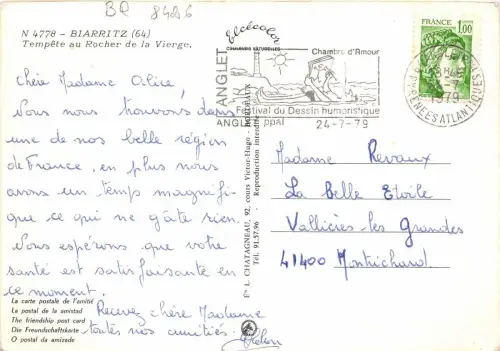 BR 8426
N 4778 - BIARRITZ (64)
Tempête au Rocher de la Vierge.
Chère Madame Alice,
Nous nous trouvons dans
une de nos belle région
de France, en plus nous
avons un temps magnifi-
que ce qui ne gâte rien.
Nous espérons que votre
santé est satisfaisante en
ce moment.
Recevez chère Madame
toutes nos amitiés.
La carte postale de l'amitié
La postal de la amistad
The friendship post card
Die Freundschaftskarte
O postal da amizade
Elcécolor
COULEURS NATURELLES
Éts L. CHATAGNEAU, 92, cours Victor-Hugo - BORDEAUX
Tél. 91.57.96 - Reproduction interdite
ANGLET
Chambre d'Amour
Festival du Dessin humoristique
ANGLET ppal
24-7-79
FRANCE
1,00
1979
PYRENEES ATLANTIQUES
Madame Revaux
La Belle Etoile
Vallières-les Grandes
41400 Montrichard